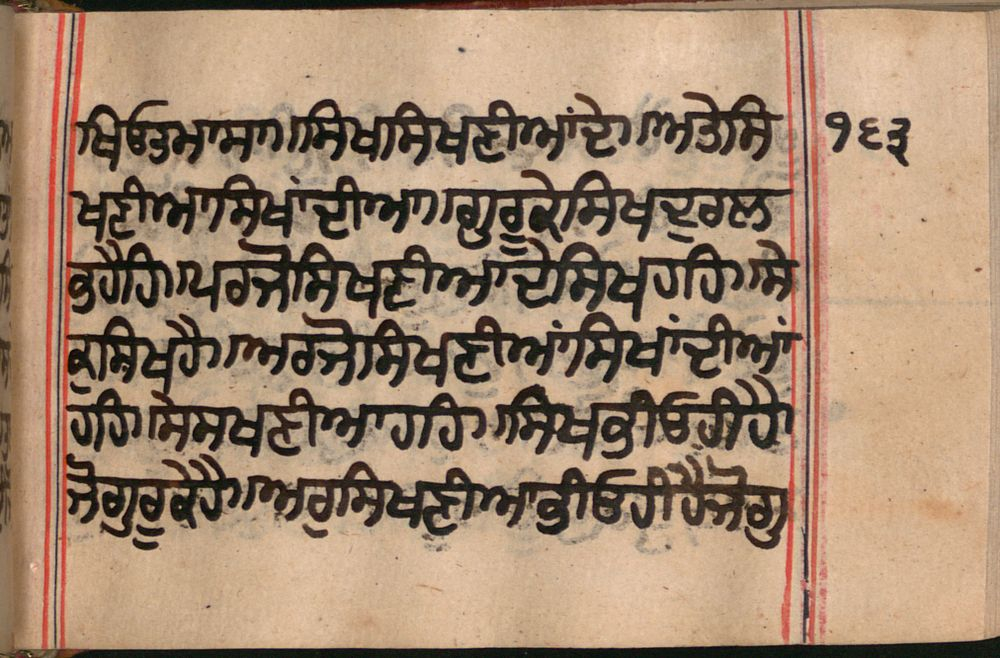 ਖਿਓਤਮਾਸਾ॥ਸਿਖਸਿਖਣੀਆਂਦੇ॥ਅਤੇਸਿ ੧੬੩
ਖਣੀਆਸਿਖਾਂਦੀਆ॥ਗੁਰੂਕੇਸਿਖਦੁਰਲ
ਭਹੈਹਿ॥ਪਰਜੋਸਿਖਣੀਆਦੇਸਿਖਹਹਿ॥ਸੇ
ਕੁਸਿਖਹੈ॥ਅਰਜੋਸਿਖਣੀਆਂਸਿਖਾਂਦੀਆਂ
ਹਹਿ॥ਸੇਸਖਣੀਆਹਹਿ॥ਸਿਖਭੀਓਹੀਹੈ
ਜੋਗੁਰੂਕੇਹੈ॥ਅਰੁਸਿਖਣੀਆਭੀਓਹੀਹੈਜੋਗੁ